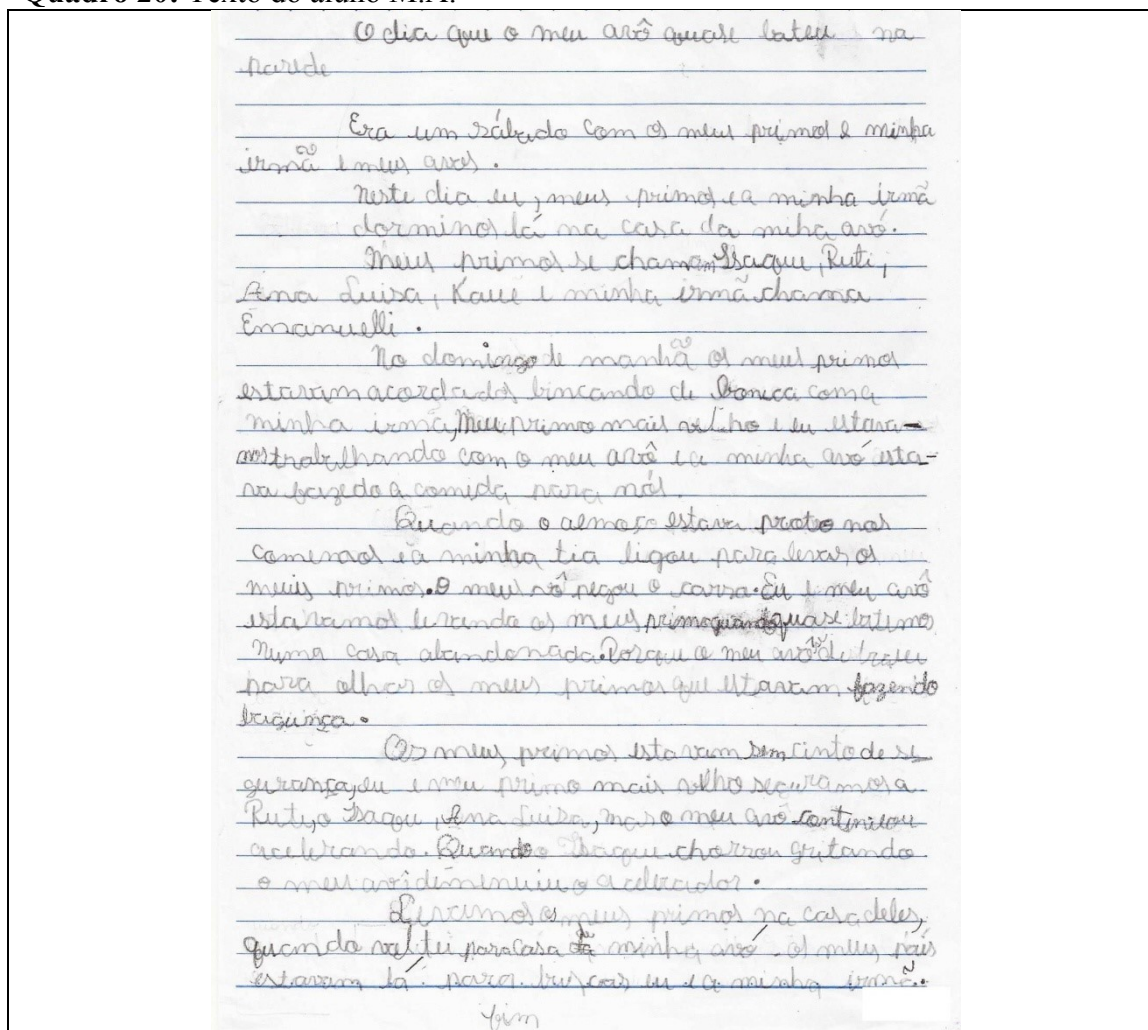 Quadro 20: Texto do aluno M.A.
O dia que o meu avô quase bateu na
parede
Era um sábado com os meus primos e minha
irmã e meus avós.
Neste dia eu, meus primos e a minha irmã
dorminos lá na casa da miha avó.
Meus primos se chamam Isaque, Ruti,
Ana Luisa, Kaue e minha irmã chama
Emanuelli.
No domingo de manhã os meus primos
estavam acordados bincando de boneca com a
minha irmã, Meu primo mais velho e eu estava-
mos trabalhando com o meu avô e a minha avó esta-
va fazedo a comida para nós.
Quando o almoço estava proto nos
comemos e a minha tia ligou para levar os
meus primos. O meu vô pegou o carro. Eu e meu avô
estavamos levando os meus primos quando quase batemo
numa casa abandonada. Porque o meu avô
para olhar os meus primos que estavam fazendo
bagunça.
Os meus primos estavam sem cinto de se
gurança, eu e meu primo mais velho seguramos a
Ruti, o Isaque, Ana Luisa, mas o meu avô continuou
acelerando. Quando o Isaque chorou gritando
o meu avô dimenuiu o acelerador.
Levamos os meus primos na casa deles,
quando voltei para casa da minha avó os meus pais
estavam lá para buscar eu e a minha irmã.
fim